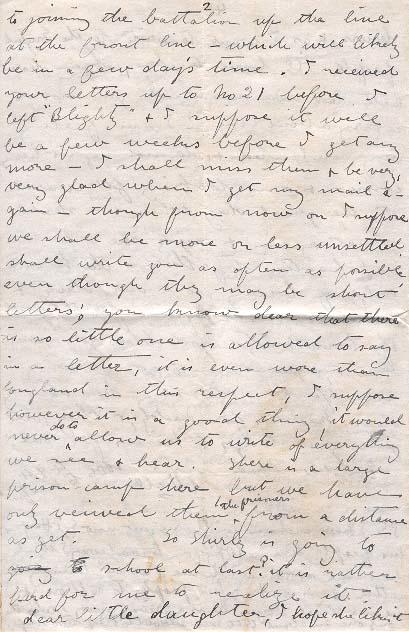 2
to joining the battalion up the line
at the front line - which will likely
be in a few day's time. I received
your letters up to No 21 before I
left "Blighty" & I suppose it will
be a few weeks before I get any
more - I shall miss them & be very,
very glad when I get my mail a-
gain - though from now on I suppose
we shall be more or less unsettled
shall write you as often as possible
even though they may be short
letters; you know dear that there
is so little one is allowed to say
in a letter, it is even worse than
England in this respect, I suppose
however it is a good thing, it would
never do to allow us to write of everything
we see & hear. There is a large
prison camp here but we have
only veiwed them (the prisoners) from a distance
as yet. So Shirly is going to
to school at last? it is rather
hard for me to realize it -
dear little daughter, I hope she